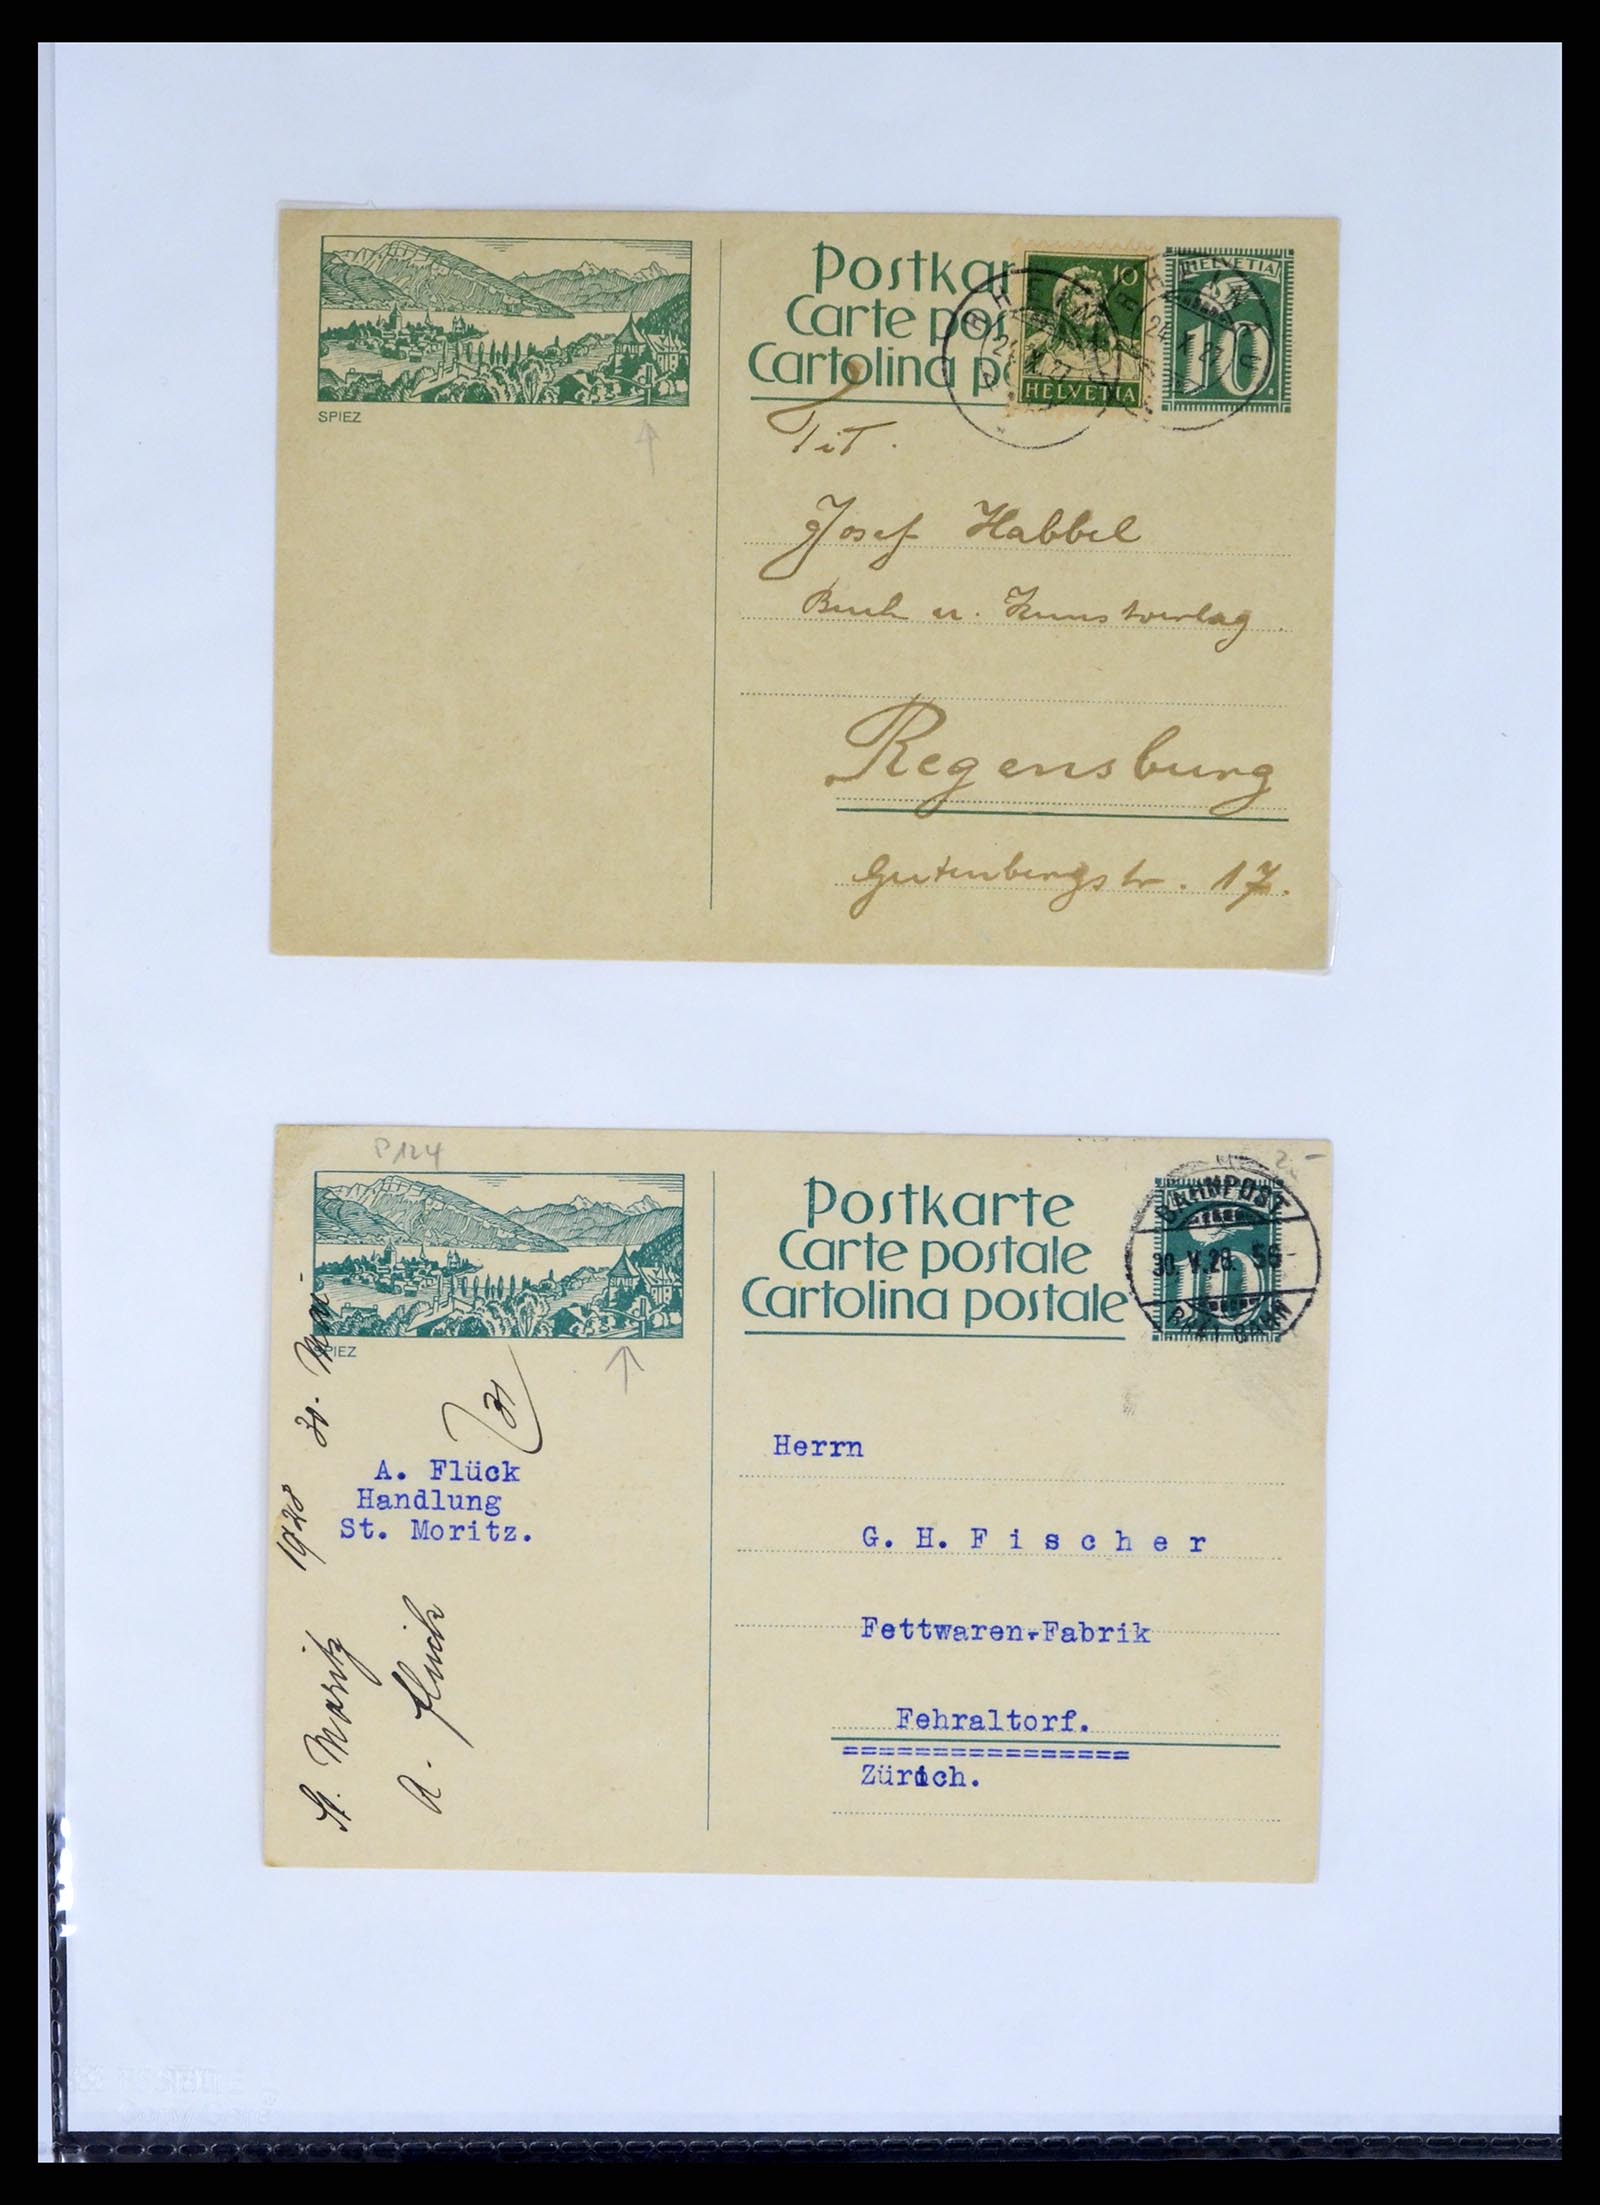 Postkar
Carte pos
Cartolina po
10
HELVETIA
HELVETIA
10
24.X.27
SPIEZ
Tit.
Josef Habbel
Buch u. Kunstverlag.
Regensburg
Gutenbergstr. 17.
P 124
2.-
Postkarte
Carte postale
Cartolina postale
BAHNPOST
30.V.28. 56
SPIEZ
31
A. Flück
Handlung
St. Moritz.
St. Moritz 1928 30. Mai
A. Flück
Herrn
G. H. Fischer
Fettwaren-Fabrik
Fehraltorf.
================
Zürich.